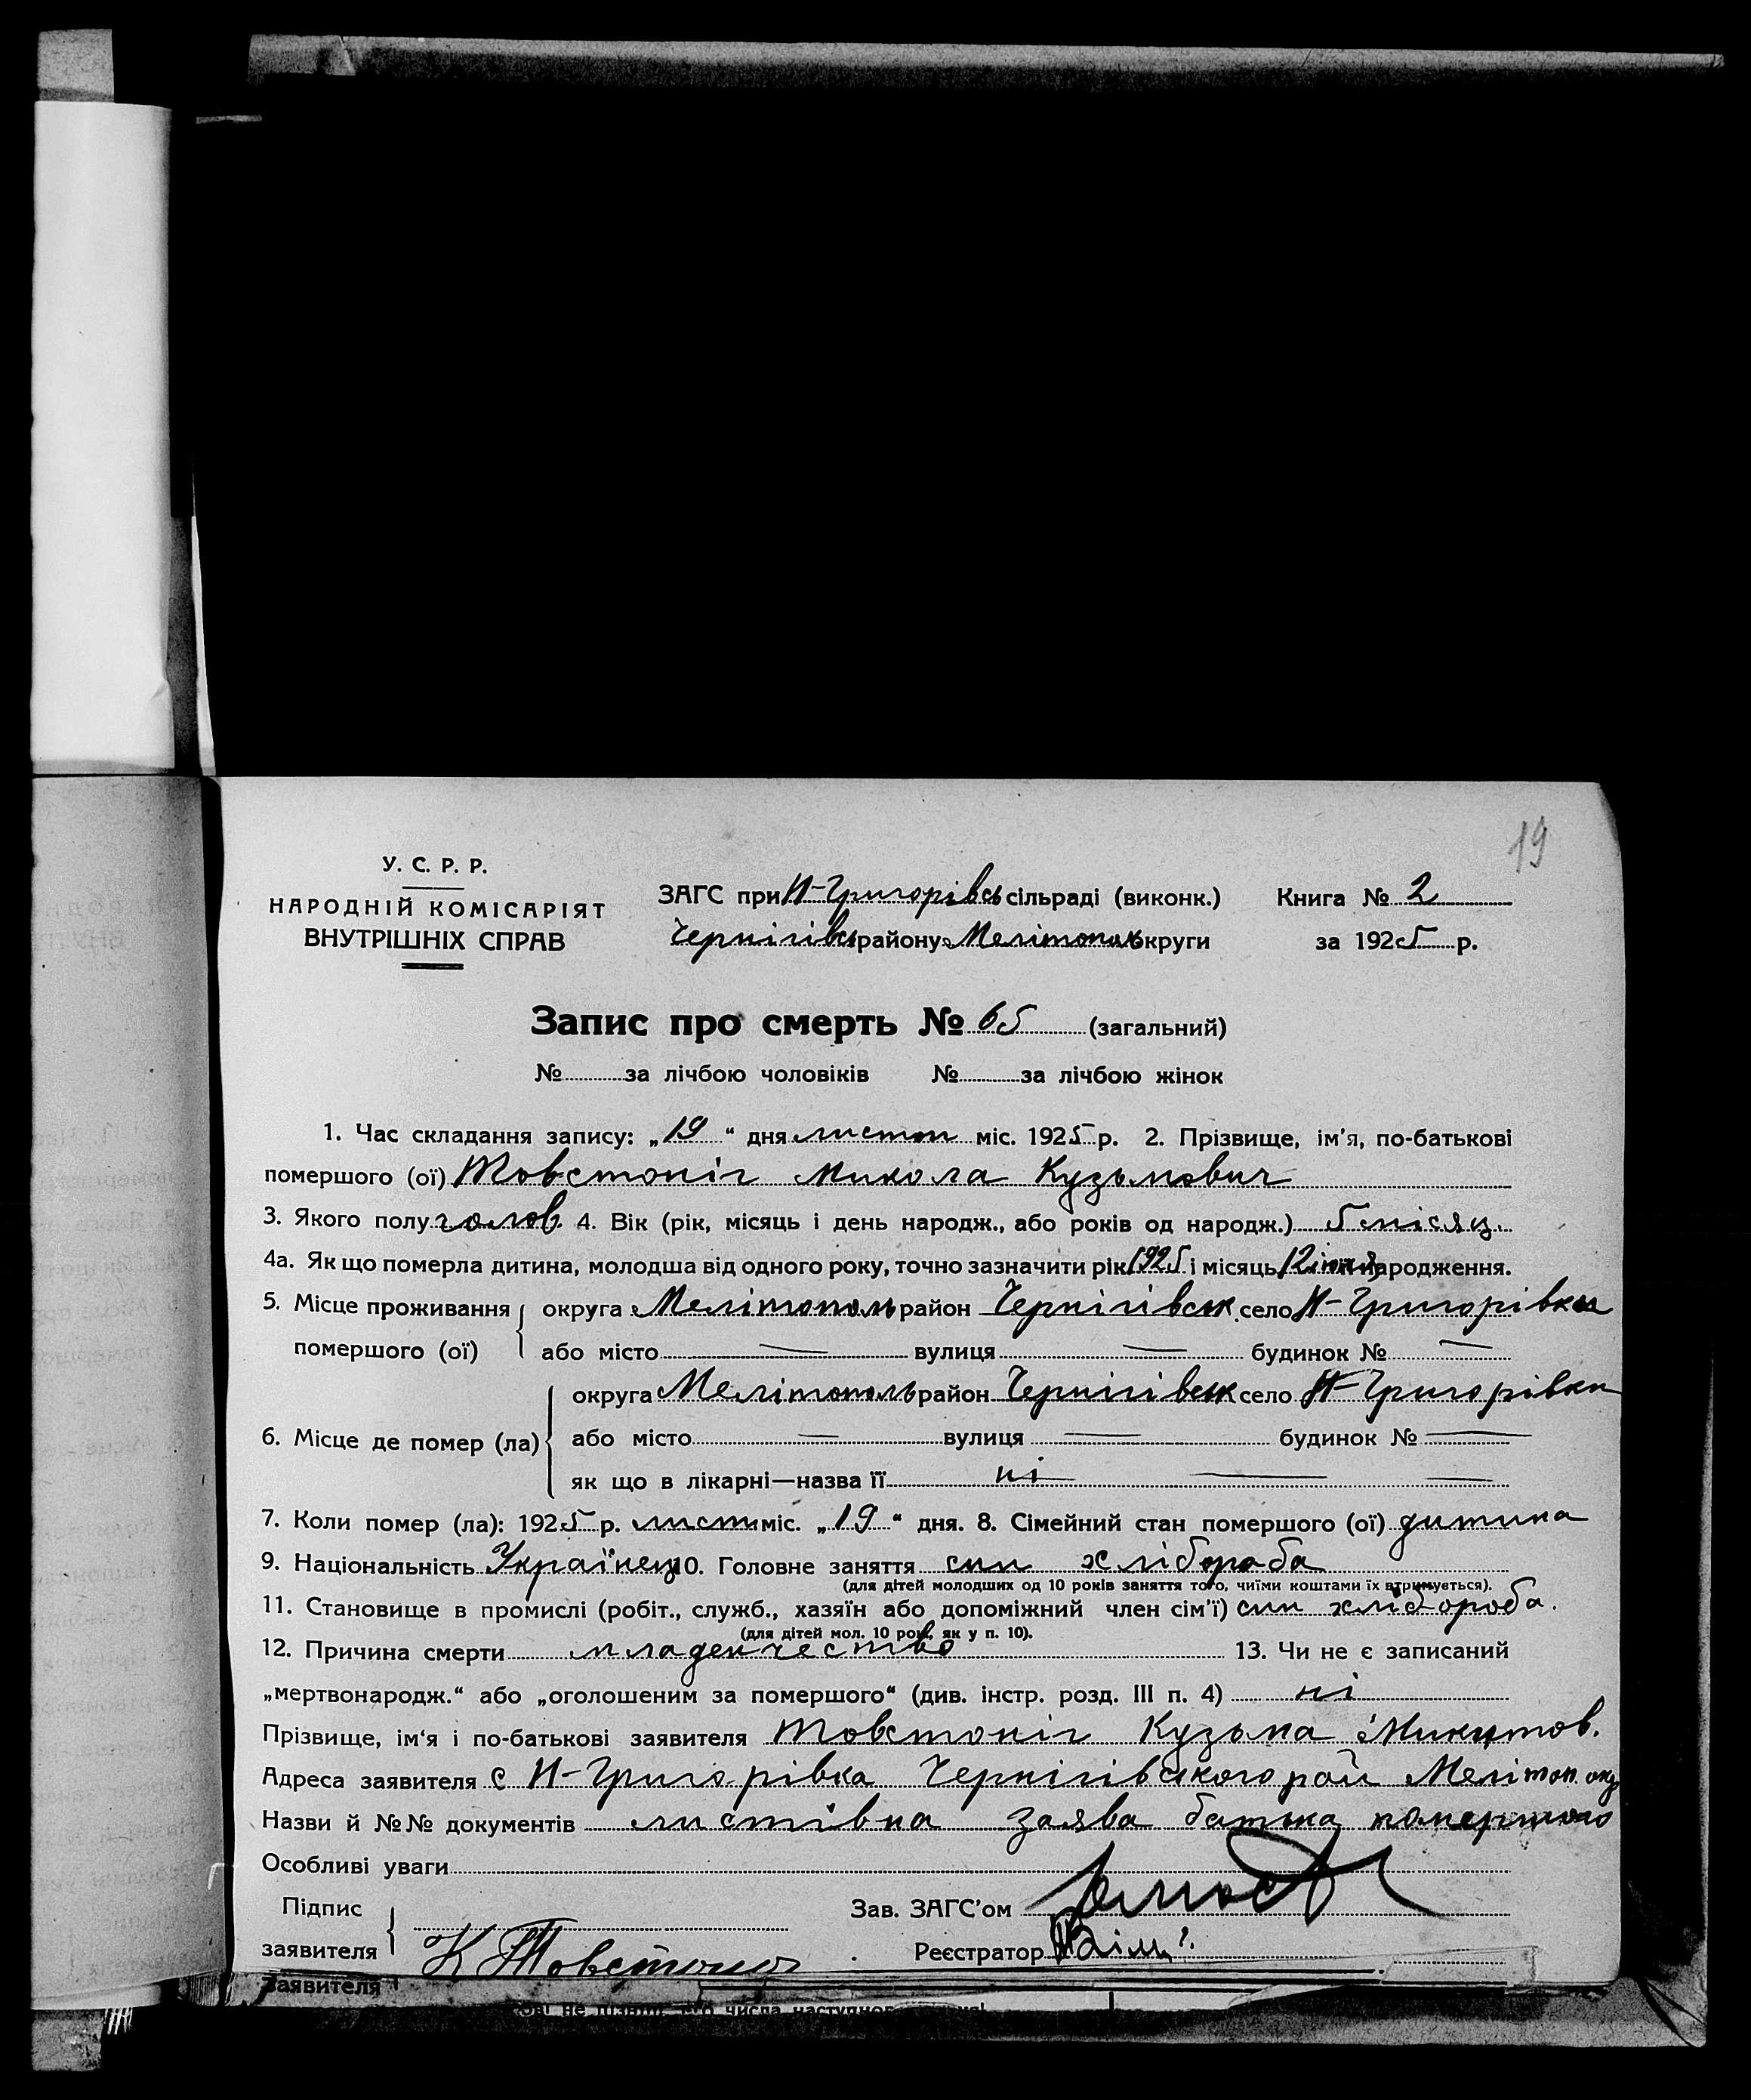 19
У. С. Р. Р.
НАРОДНІЙ КОМІСАРІЯТ
ВНУТРІШНІХ СПРАВ
ЗАГС при Н-Григорівсь сільраді (виконк.) Книга № 2
Чернігівсь району Мелітополь округи за 1925 р.
Запис про смерть № 65 (загальний)
№ за лічбою чоловіків № за лічбою жінок
1. Час складання запису: „19“ дня листоп міс. 1925 р. 2. Прізвище, ім'я, по-батькові
помершого (ої) Товстопіг Микола Кузьмович
3. Якого полу чолов. 4. Вік (рік, місяць і день народж., або років од народж.) 5 місяц.
4а. Як що померла дитина, молодша від одного року, точно зазначити рік 1925 і місяць 12 народження.
5. Місце проживання округа Мелітополь район Чернігівськ село Н-Григорівка
помершого (ої) або місто — вулиця — будинок № —
округа Мелітополь район Чернігівськ село Н-Григорівки
6. Місце де помер (ла) або місто — вулиця — будинок № —
як що в лікарні—назва її ні — —
7. Коли помер (ла): 1925 р. листоп міс. „19“ дня. 8. Сімейний стан помершого (ої) дитина
9. Національність Українец 10. Головне заняття син хлібороба
(для дітей молодших од 10 років заняття того, чиїми коштами їх втримується).
11. Становище в промислі (робіт., служб., хазяїн або допоміжний член сім'ї) син хлібороба.
(для дітей мол. 10 рок., як у п. 10).
12. Причина смерти младенчество 13. Чи не є записаний
„мертвонародж.“ або „оголошеним за помершого“ (див. інстр. розд. III п. 4) ні
Прізвище, ім'я і по-батькові заявителя Товстопіг Кузьма Микитов.
Адреса заявителя с Н-Григорівка Чернігівського рай Мелітоп. окр
Назви й №№ документів листівна заява батька помершого
Особливі уваги
Підпис Зав. ЗАГС'ом
заявителя К Товстопіг Реєстратор
Заявителя
числа